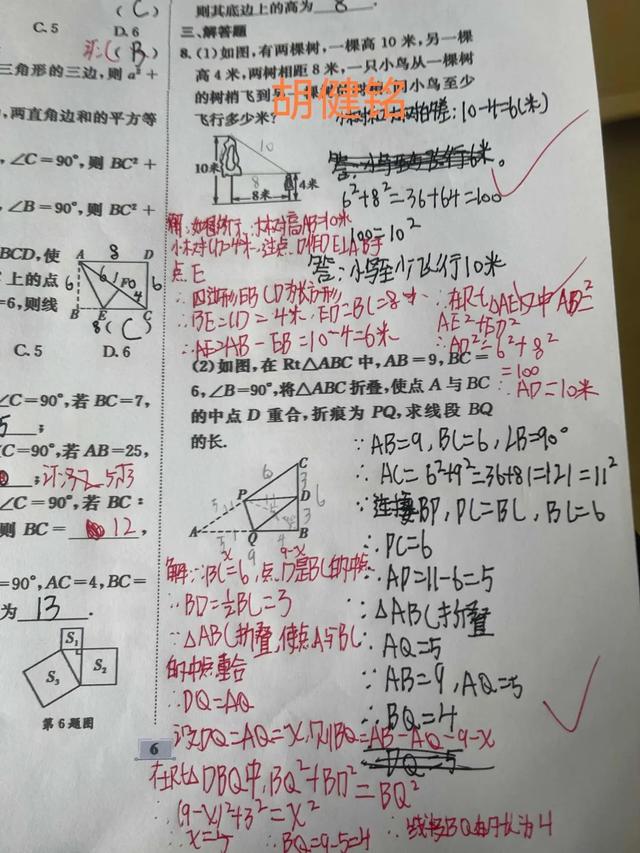 ( C )
C. 5 D. 6
( B )
三角形的三边,则 a²+
,两直角边和的平方等
,∠C=90°,则 BC²+
,∠B=90°,则 BC²+
BCD,使
上的点
=6,则线
A 8 D
6 6 F 6
B E C
8 ( C )
C. 5 D. 6
∠C=90°,若 BC=7,
5 ;
C=90°,若 AB=25,
;
∠C=90°,若 BC:
则 BC= 12 ,
=90°,AC=4,BC=
为 13 .
S₁
S₂
S₃
第 6 题图
6
则其底边上的高为 8 .
三、解答题
8. (1)如图,有两棵树,一棵高 10 米,另一棵
高 4 米,两树相距 8 米,一只小鸟从一棵树
的树梢飞到另一棵
小鸟至少
飞行多少米?
胡健铭
10-4=6(米)
10米
10
8
8米
4米
答:小鸟至少飞行6米。
6²+8²=36+64=100
100=10²
答:小鸟至少飞行10米
解:如图所示,大树高AB=10米
小树高CD=4米,过点D作DE⊥AB于
点E
∴四边形EBCD为长方形
∴BE=CD=4米 ED=BC=8米
∴AE=AB-EB=10-4=6米
∴在Rt△AED中AD²=
AE²+ED²
∴AD²=6²+8²
=100
∴AD=10米
(2)如图,在 Rt△ABC 中,AB=9,BC=
6,∠B=90°,将△ABC 折叠,使点 A 与 BC
的中点 D 重合,折痕为 PQ,求线段 BQ
的长.
C
6 3
P D 6
3
A Q B
5 4
9
x 9-x
解:∵BC=6,点D是BC的中点
∴BD=½BC=3
∵△ABC折叠,使点A与BC
的中点重合
∴DQ=AQ
设DQ=AQ=x,则BQ=AB-AQ=9-x
在Rt△DBQ中,BQ²+BD²=BQ²
∴(9-x)²+3²=x²
∴x=5 ∴BQ=9-5=4 ∴线段BQ的长为4
∵AB=9,BC=6,∠B=90°
∴AC=6²+9²=36+81=121=11²
∵连接BP,PC=BC,BC=6
∴PC=6
∴AP=11-6=5
∵△ABC折叠
∴AQ=5
∵AB=9,AQ=5
∴BQ=4
DQ=5